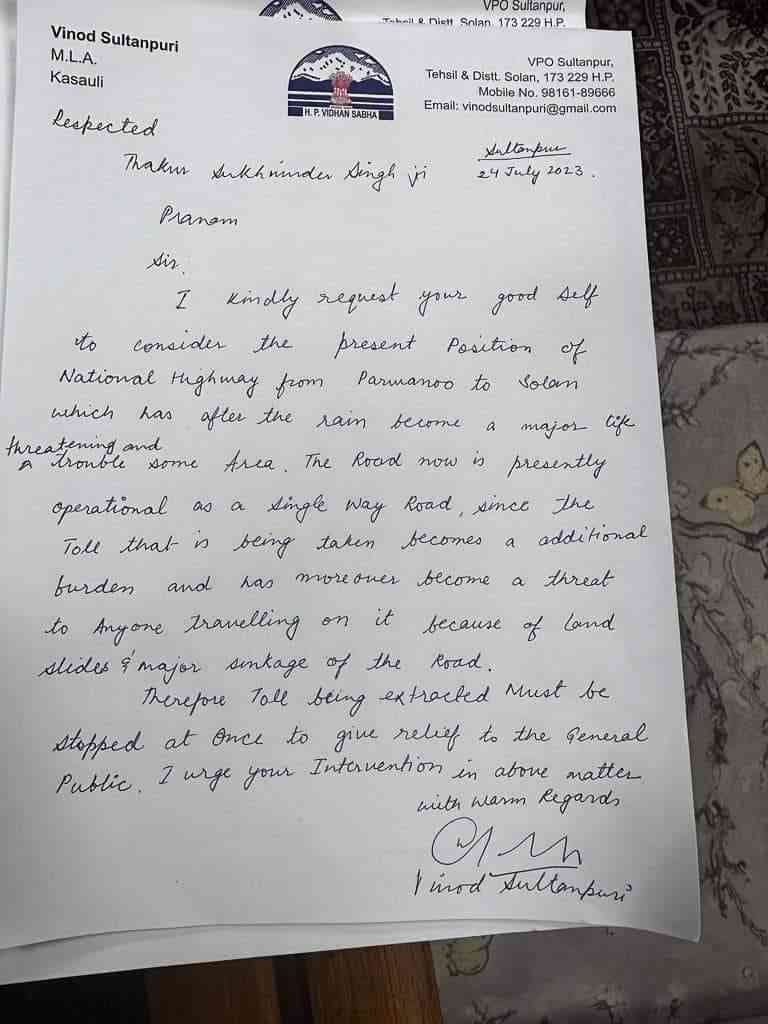 VPO Sultanpur,
Tehsil & Distt. Solan, 173 229 H.P.
Vinod Sultanpuri
M.L.A.
Kasauli
H.P. VIDHAN SABHA
VPO Sultanpur,
Tehsil & Distt. Solan, 173 229 H.P.
Mobile No. 98161-89666
Email: vinodsultanpuri@gmail.com
Respected
Sultanpur
24 July 2023.
Thakur Sukhwinder Singh ji
Pranam
Sir.
I kindly request your good self
to consider the present Position of
National Highway from Parwanoo to Solan
which has after the rain become a major life
threatening and
a trouble some Area. The Road now is presently
operational as a Single Way Road, since the
Toll that is being taken becomes a additional
burden and has moreover become a threat
to Anyone travelling on it because of land
slides & major sinkage of the Road.
Therefore Toll being extracted Must be
stopped at Once to give relief to the General
Public. I urge your Intervention in above matter
with Warm Regards
Vinod Sultanpuri